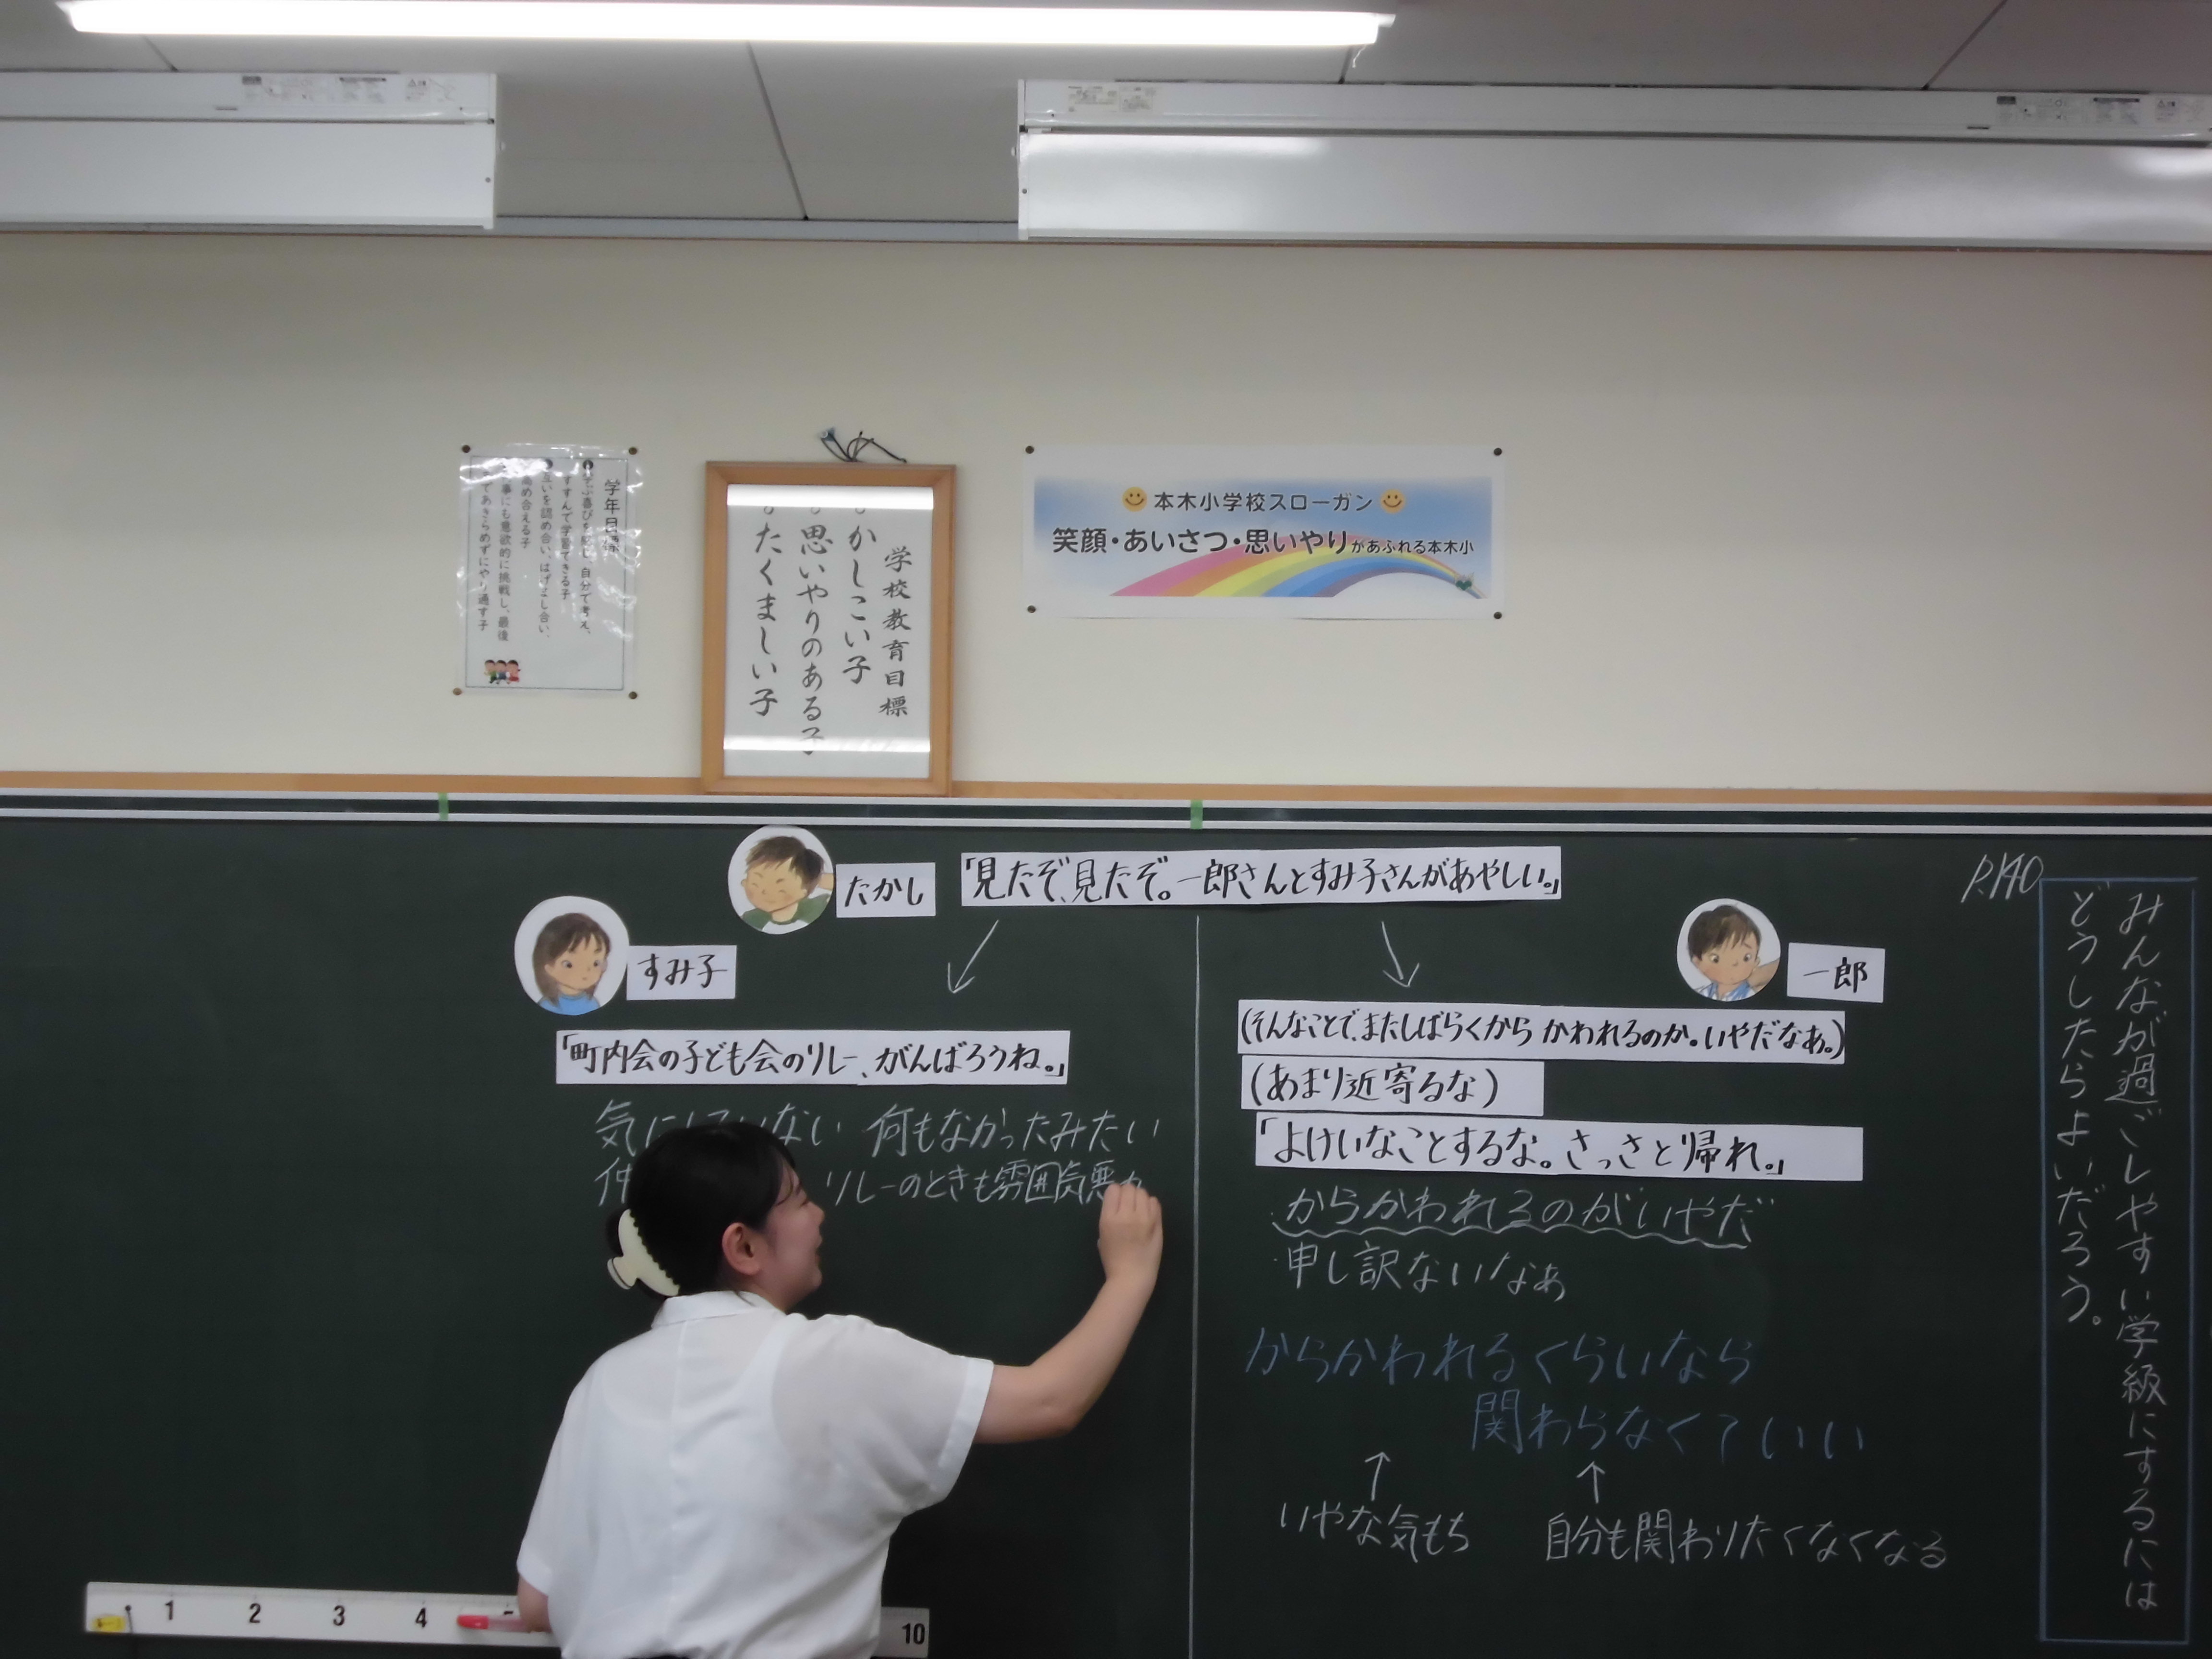 学年目標
自分で考え、
すすんで学習できる子
互いを認め合い、はげまし合い、
高め合える子
事にも意欲的に挑戦し、最後
であきらめずにやり通す子
学校教育目標
かしこい子
思いやりのある子
たくましい子
本木小学校スローガン
笑顔・あいさつ・思いやりがあふれる本木小
P.140
みんなが過ごしやすい学級にするには
どうしたらよいだろう。
たかし
「見たぞ、見たぞ。一郎さんとすみ子さんがあやしい。」
一郎
(そんなことで、またしばらくからかわれるのか。いやだなあ。)
(あまり近寄るな)
「よけいなことするな。さっさと帰れ。」
・からかわれるのがいやだ
・申し訳ないなぁ
からかわれるくらいなら
関わらなくていい
↑ ↑
いやな気もち 自分も関わりたくなくなる
すみ子
「町内会の子ども会のリレー、がんばろうね。」
気に ない 何もなかったみたい
仲 リレーのときも雰囲気悪
1 2 3 4 10